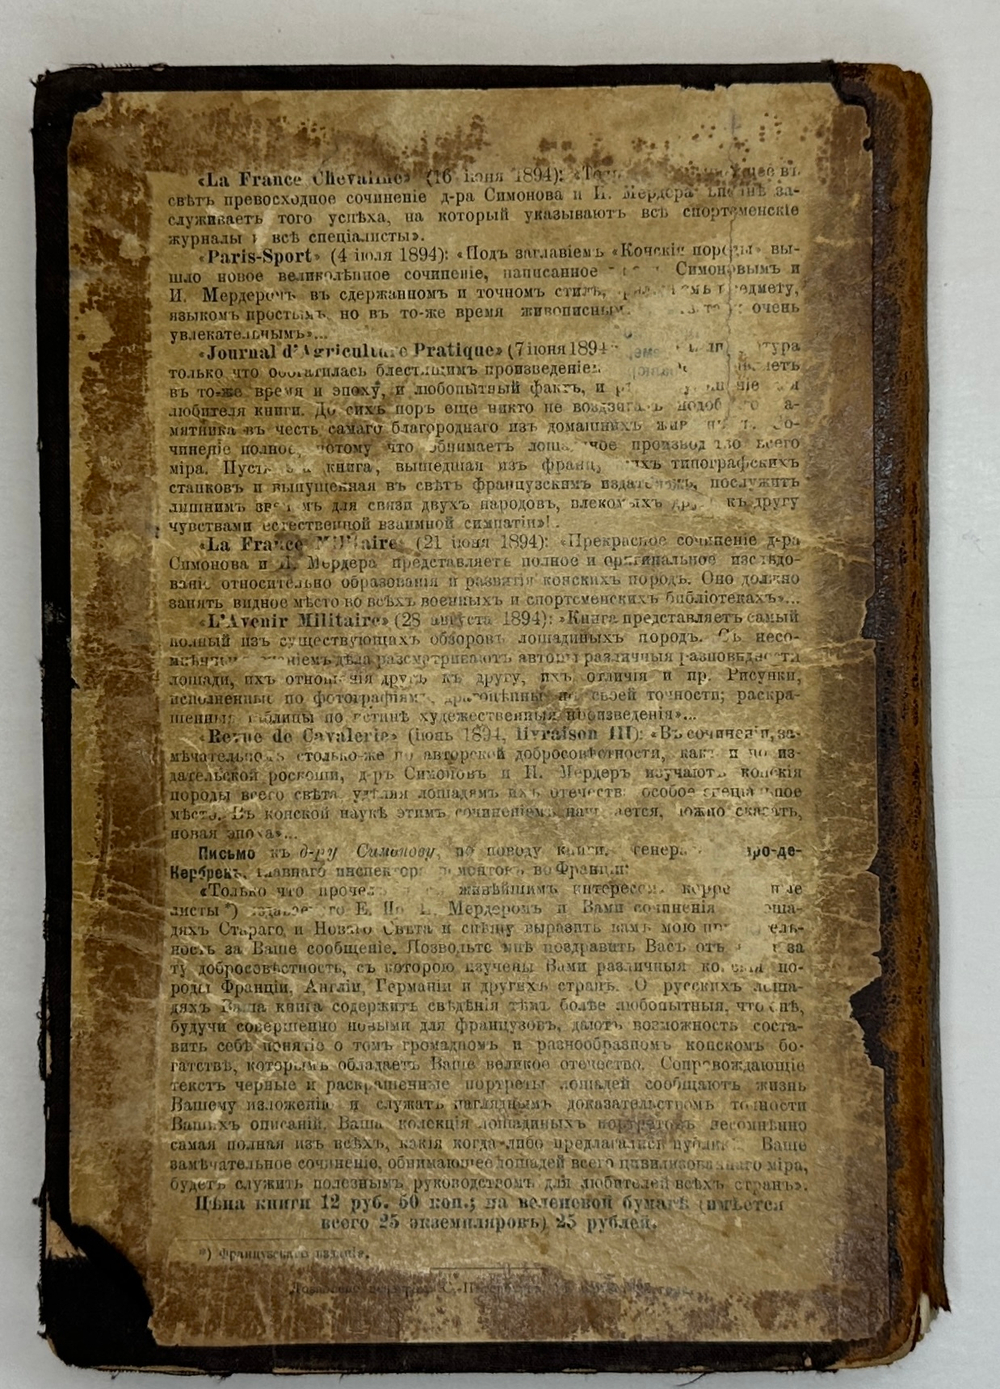 «La France Chevaline» (16 іюня 1894): въ
свѣтъ превосходное сочиненіе д-ра Симонова и И. Мердера вполнѣ за-
служиваетъ того успѣха, на который указываютъ всѣ спортсменскіе
журналы и всѣ спеціалисты».
«Paris-Sport» (4 іюля 1894): «Подъ заглавіемъ «Конскія породы» вы-
шло новое великолѣпное сочиненіе, написанное Симоновымъ и
И. Мердеромъ въ сдержанномъ и точномъ стилѣ, предмету,
языкомъ простымъ, но въ то-же время живописнымъ очень
увлекательнымъ»...
«Journal d'Agriculture Pratique» (7 іюня 1894
только что обогатилась блестящимъ произведеніемъ
въ то-же время и эпоху, и любопытный фактъ, и
любителя книги. До сихъ поръ еще никто не воздвигалъ подобнаго па-
мятника въ честь самаго благороднаго изъ домашнихъ животныхъ. Со-
чиненіе полное, потому что обнимаетъ лошадиное производство всего
міра. Пусть книга, вышедшая изъ французскихъ типографскихъ
станковъ и выпущенная въ свѣтъ французскимъ издателемъ, послужитъ
лишнимъ звеномъ для связи двухъ народовъ, влекомыхъ другъ къ другу
чувствами естественной взаимной симпатіи»!..
«La France Militaire» (21 іюня 1894): «Прекрасное сочиненіе д-ра
Симонова и И. Мердера представляетъ полное и оригинальное изслѣдо-
ваніе относительно образованія и развитія конскихъ породъ. Оно должно
занять видное мѣсто во всѣхъ военныхъ и спортсменскихъ библіотекахъ»...
«L'Avenir Militaire» (28 августа 1894): «Книга представляетъ самый
полный изъ существующихъ обзоровъ лошадиныхъ породъ. Съ несо-
мнѣннымъ знаніемъ дѣла разсматриваютъ авторы различныя разновидности
лошади, ихъ отношенія другъ къ другу, ихъ отличія и пр. Рисунки,
исполненные по фотографіямъ, драгоцѣнны по своей точности; раскра-
шенныя таблицы по истинѣ художественныя произведенія»...
«Revue de Cavalerie» (іюнь 1894, livraison III): «Въ сочиненіи, за-
мѣчательномъ столько-же по авторской добросовѣстности, какъ и по из-
дательской роскоши, д-ръ Симоновъ и И. Мердеръ изучаютъ конскія
породы всего свѣта, удѣляя лошадямъ ихъ отечества особое спеціальное
мѣсто. Въ конской наукѣ этимъ сочиненіемъ начинается, можно сказать,
новая эпоха»...
Письмо къ д-ру Симонову, по поводу книги, генерала
Кербрекъ, главнаго инспектора ремонтовъ во Франціи:
«Только что прочелъ живѣйшимъ интересомъ
листы *) И. Мердеромъ и Вами сочиненія лоша-
дяхъ Стараго и Новаго Свѣта и спѣшу выразить вамъ мою
ность за Ваше сообщеніе. Позвольте мнѣ поздравить Васъ отъ за
ту добросовѣстность, съ которою изучены Вами различныя конскія по-
роды Франціи, Англіи, Германіи и другихъ странъ. О русскихъ лоша-
дяхъ Ваша книга содержитъ свѣдѣнія тѣмъ болѣе любопытныя, что онѣ,
будучи совершенно новыми для французовъ, даютъ возможность соста-
вить себѣ понятіе о томъ громадномъ и разнообразномъ конскомъ бо-
гатствѣ, которымъ обладаетъ Ваше великое отечество. Сопровождающіе
текстъ черные и раскрашенные портреты лошадей сообщаютъ жизнь
Вашему изложенію и служатъ нагляднымъ доказательствомъ точности
Вашихъ описаній. Ваша колекція лошадиныхъ портретовъ несомнѣнно
самая полная изъ всѣхъ, какія когда-либо предлагались публикѣ. Ваше
замѣчательное сочиненіе, обнимающее лошадей всего цивилизованнаго міра,
будетъ служить полезнымъ руководствомъ для любителей всѣхъ странъ».
Цѣна книги 12 руб. 50 коп.; на веленовой бумагѣ (имѣется
всего 25 экземпляровъ) 25 рублей.
*) Французскаго изданія.